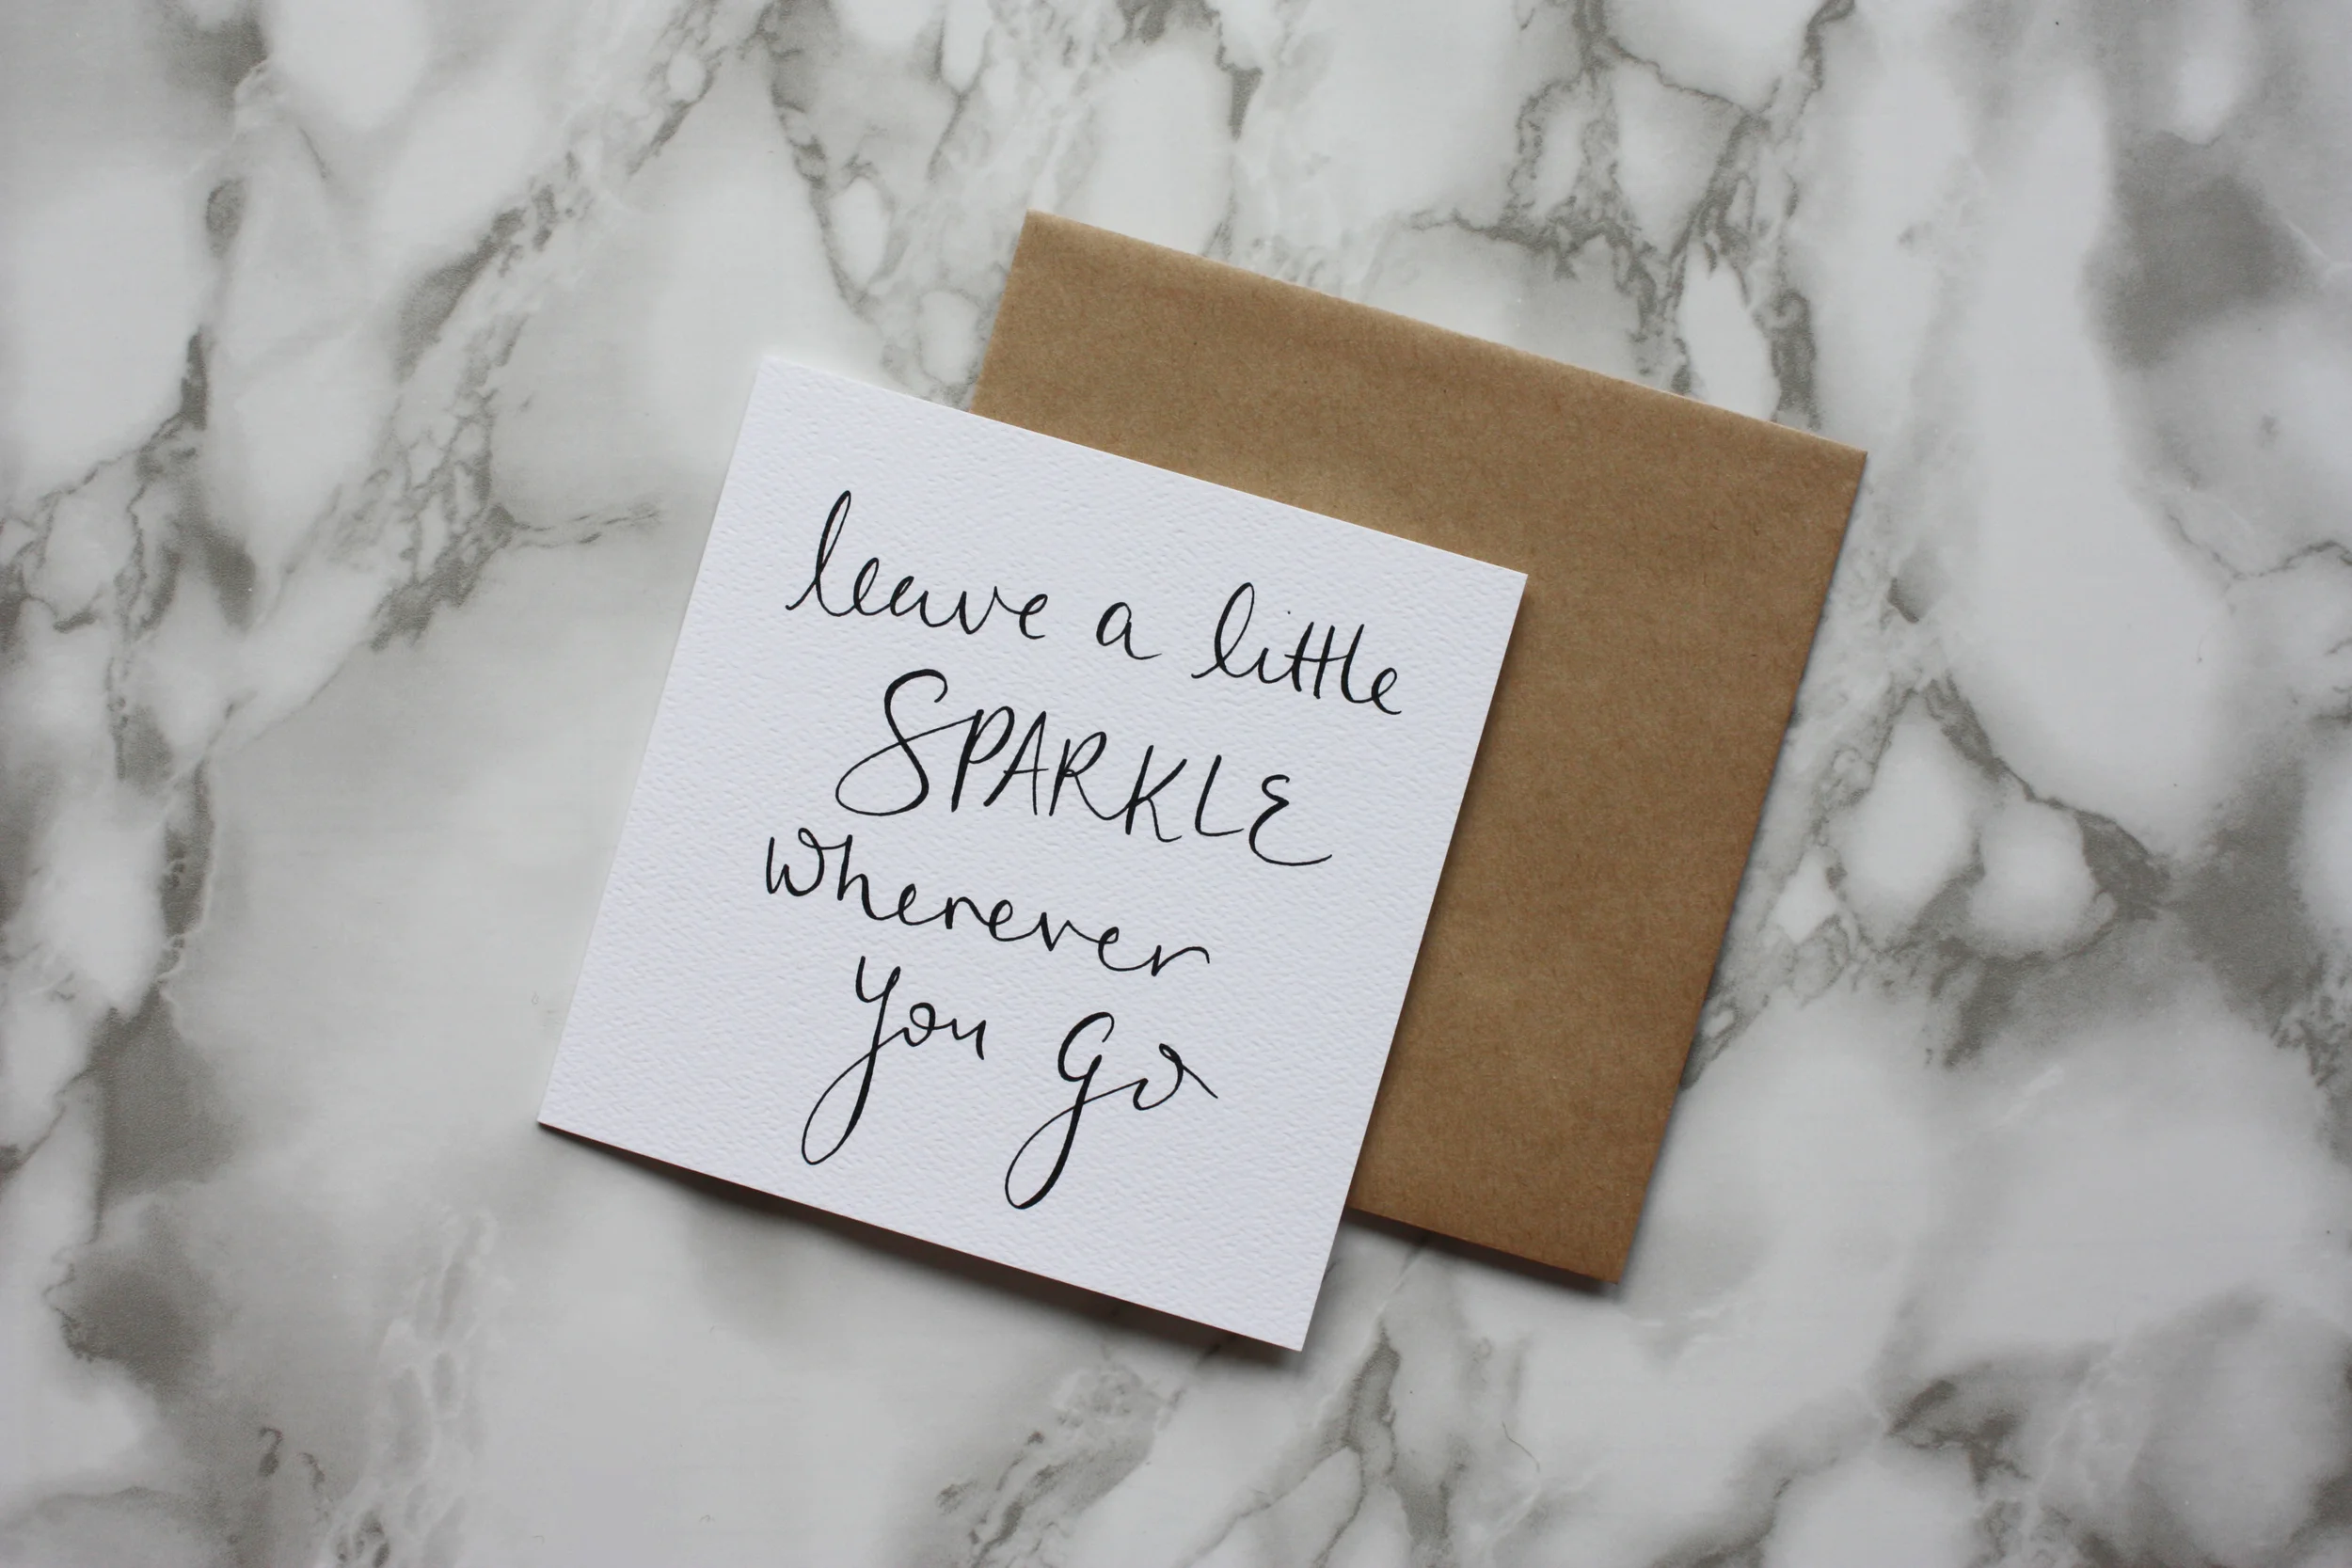 leave a little
SPARKLE
wherever
you go